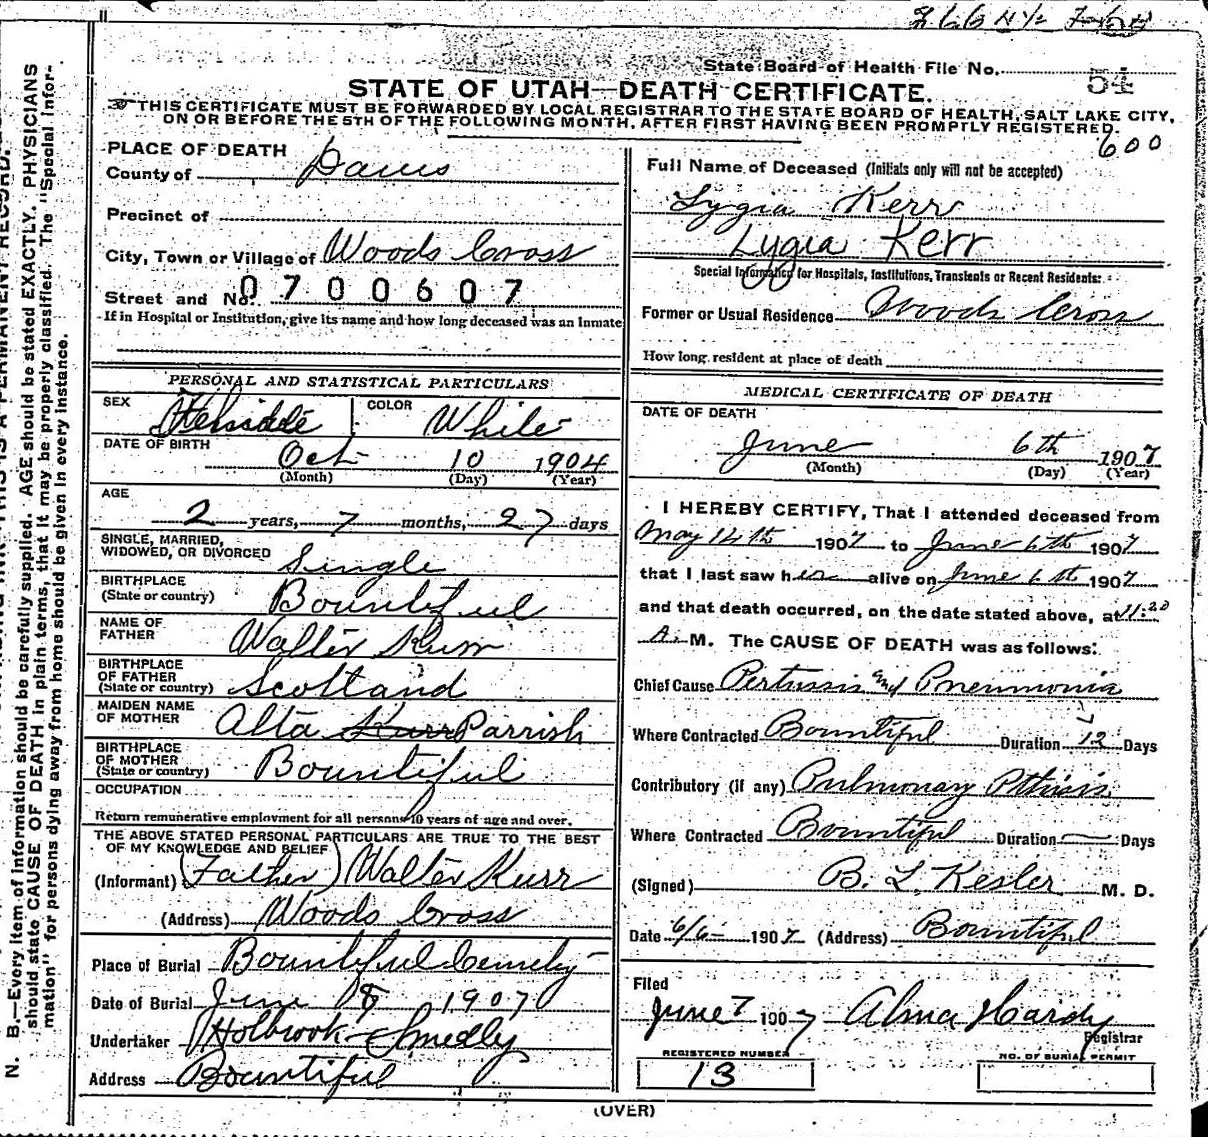 State Board of Health File No. 54
STATE OF UTAH—DEATH CERTIFICATE.
THIS CERTIFICATE MUST BE FORWARDED BY LOCAL REGISTRAR TO THE STATE BOARD OF HEALTH, SALT LAKE CITY,
ON OR BEFORE THE 5TH OF THE FOLLOWING MONTH, AFTER FIRST HAVING BEEN PROMPTLY REGISTERED.
600
PLACE OF DEATH
County of Davis
Precinct of
City, Town or Village of Woods Cross
Street and No. 0700607
If in Hospital or Institution, give its name and how long deceased was an Inmate
Full Name of Deceased (Initials only will not be accepted)
Lygia Kerr
Lygia Kerr
Special Information for Hospitals, Institutions, Transients or Recent Residents:
Former or Usual Residence Woods Cross
How long resident at place of death
PERSONAL AND STATISTICAL PARTICULARS
SEX Female COLOR White
DATE OF BIRTH Oct 10 1904
(Month) (Day) (Year)
AGE
2 years, 7 months, 27 days
SINGLE, MARRIED,
WIDOWED, OR DIVORCED Single
BIRTHPLACE
(State or country) Bountiful
NAME OF
FATHER Walter Kurr
BIRTHPLACE
OF FATHER
(State or country) Scotland
MAIDEN NAME
OF MOTHER Alta Kurr Parrish
BIRTHPLACE
OF MOTHER
(State or country) Bountiful
OCCUPATION
Return remunerative employment for all persons 10 years of age and over.
THE ABOVE STATED PERSONAL PARTICULARS ARE TRUE TO THE BEST
OF MY KNOWLEDGE AND BELIEF
(Informant) (Father) Walter Kurr
(Address) Woods Cross
Place of Burial Bountiful Cemety
Date of Burial June 8 1907
Undertaker Holbrook Smedly
Address Bountiful
MEDICAL CERTIFICATE OF DEATH
DATE OF DEATH
June 6th 1907
(Month) (Day) (Year)
I HEREBY CERTIFY, That I attended deceased from
May 14th 1907 to June 6th 1907
that I last saw her alive on June 6th 1907
and that death occurred, on the date stated above, at 11:20
A. M. The CAUSE OF DEATH was as follows:
Chief Cause Pertussis and Pneumonia
Where Contracted Bountiful Duration 12 Days
Contributory (if any) Pulmonary Pthisis
Where Contracted Bountiful Duration — Days
(Signed) B. L. Kesler M. D.
Date 6/6 1907 (Address) Bountiful
Filed
June 7 1907 Alma Hardy
Registrar
REGISTERED NUMBER
13
NO. OF BURIAL PERMIT
(OVER)
N. B.—Every item of information should be carefully supplied. AGE should be stated EXACTLY. PHYSICIANS
should state CAUSE OF DEATH in plain terms, that it may be properly classified. The "Special Infor-
mation" for persons dying away from home should be given in every instance.